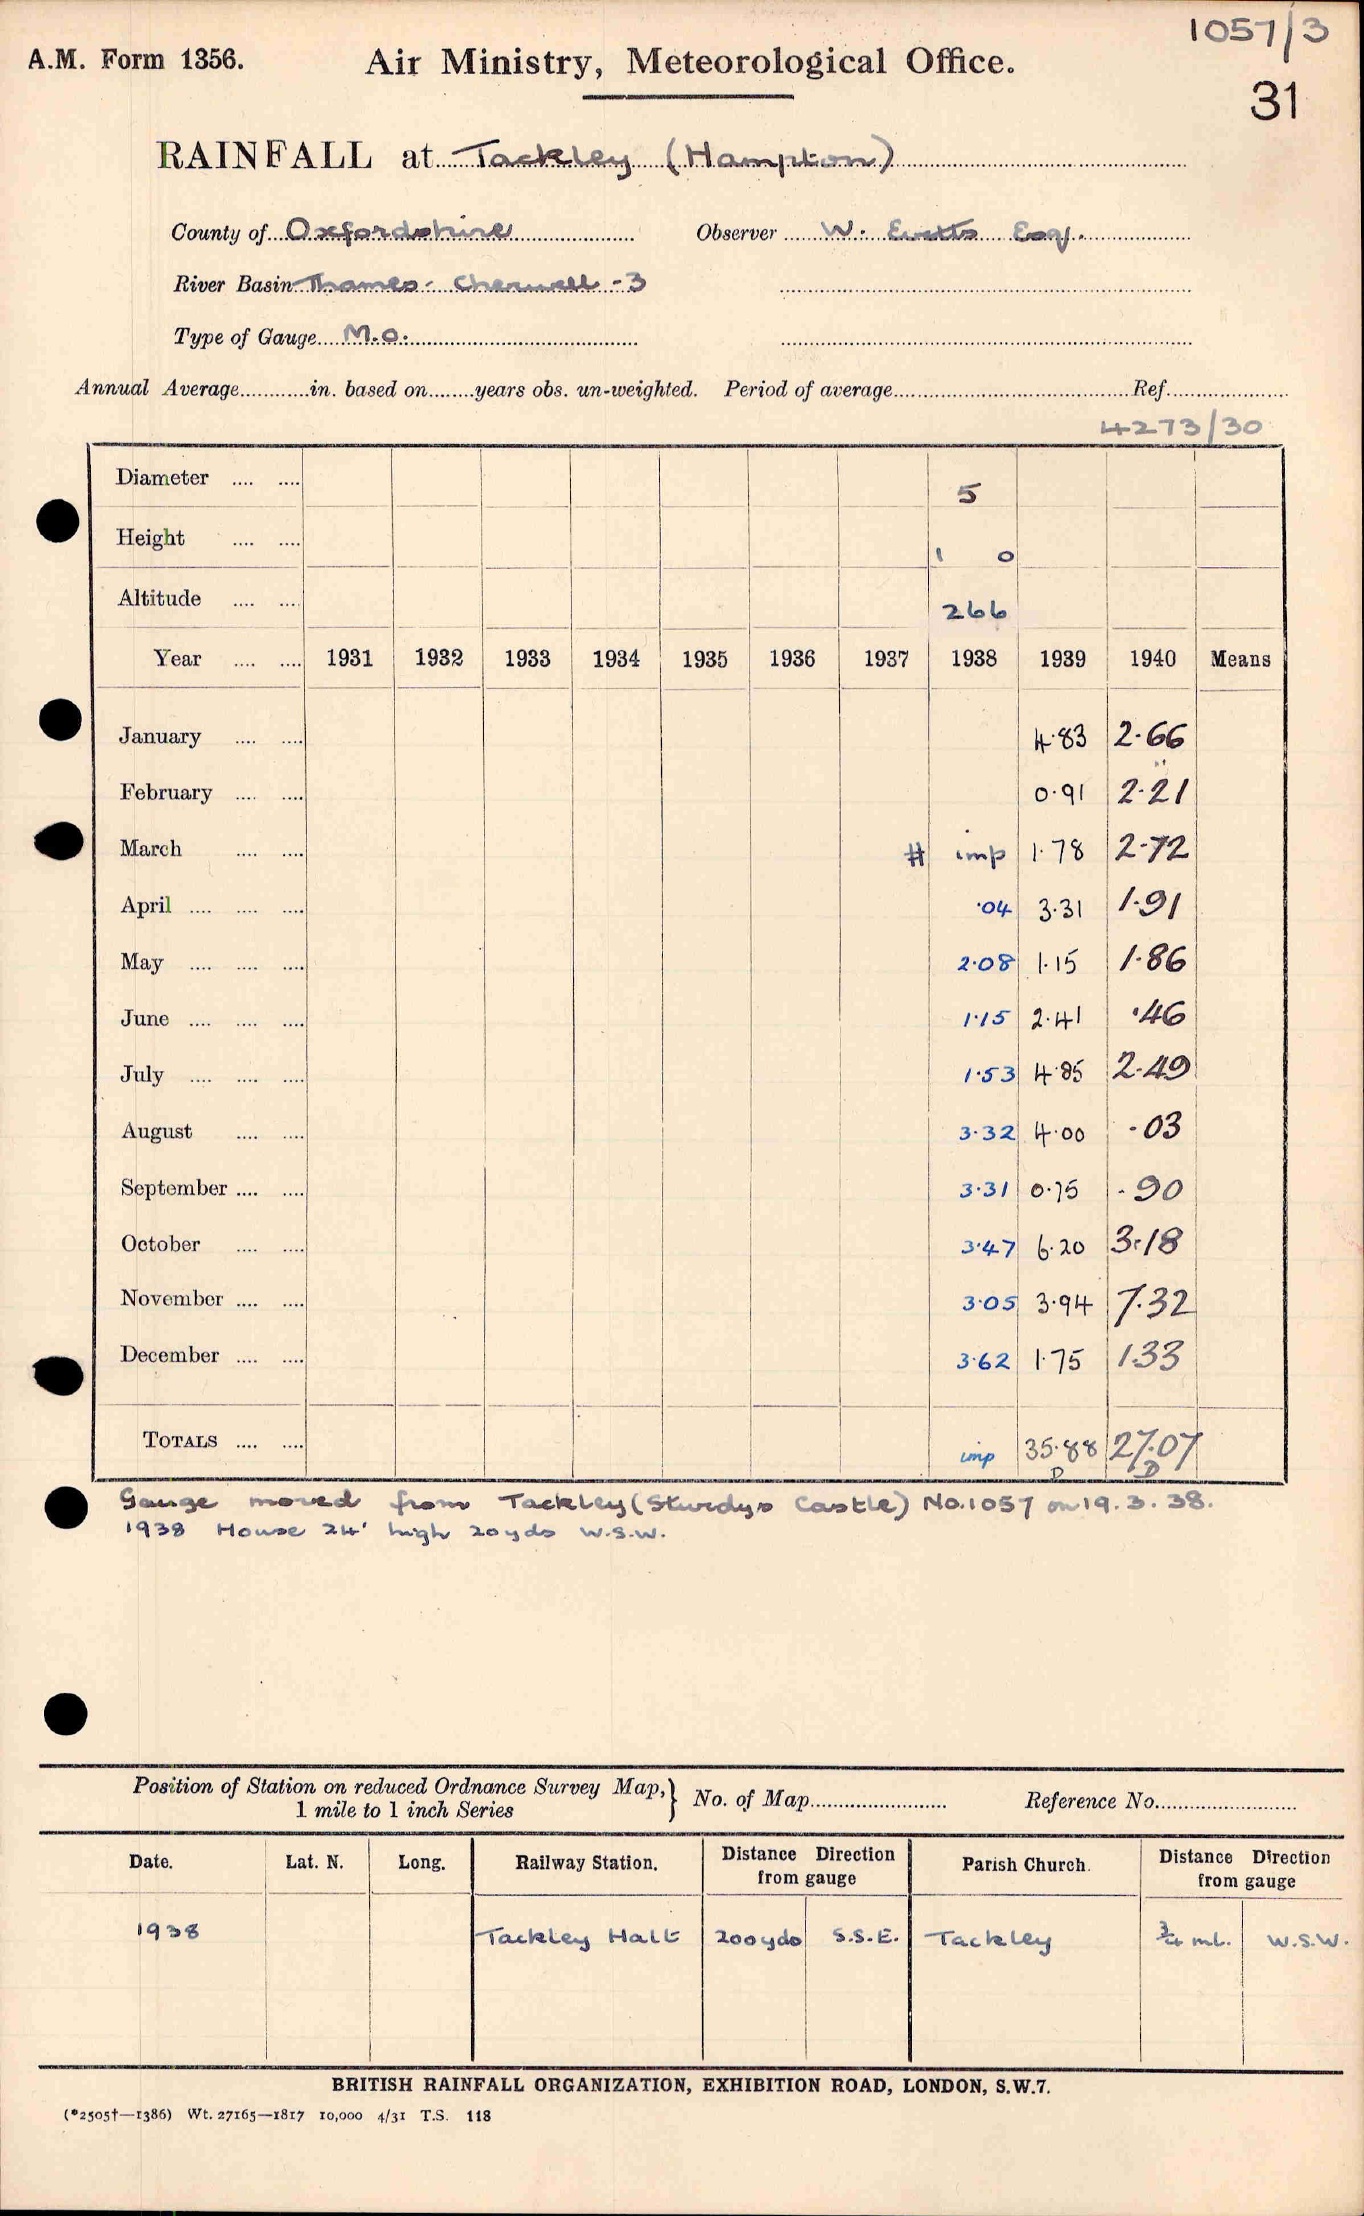 1057/3
A.M. Form 1356. Air Ministry, Meteorological Office.
31
RAINFALL at Tackley (Hampton)
County of Oxfordshire Observer W. Evetts Esq.
River Basin Thames - Cherwell - 3
Type of Gauge M.O.
Annual Average............in. based on........years obs. un-weighted. Period of average.................... Ref....................
4273/30
Diameter .... .... 5
Height .... .... 1 0
Altitude .... .... 266
Year .... .... 1931 1932 1933 1934 1935 1936 1937 1938 1939 1940 Means
January .... .... 4.83 2.66
February .... .... 0.91 2.21
March .... .... # imp 1.78 2.72
April .... .... .... .04 3.31 1.91
May .... .... .... 2.08 1.15 1.86
June .... .... .... 1.15 2.41 .46
July .... .... .... 1.53 4.85 2.49
August .... .... 3.32 4.00 .03
September .... .... 3.31 0.75 .90
October .... .... 3.47 6.20 3.18
November .... .... 3.05 3.94 7.32
December .... .... 3.62 1.75 1.33
TOTALS .... .... imp 35.88 27.07
D D
Gauge moved from Tackley (Sturdys Castle) No. 1057 on 19.3.38.
1938 House 24' high 20yds W.S.W.
Position of Station on reduced Ordnance Survey Map, } No. of Map........................ Reference No.........................
1 mile to 1 inch Series
Date. Lat. N. Long. Railway Station. Distance Direction from gauge Parish Church. Distance Direction from gauge
1938 Tackley Halt 200yds S.S.E. Tackley ¾ ml. W.S.W.
BRITISH RAINFALL ORGANIZATION, EXHIBITION ROAD, LONDON, S.W.7.
(*2505†—1386) Wt. 27165—1817 10,000 4/31 T.S. 118